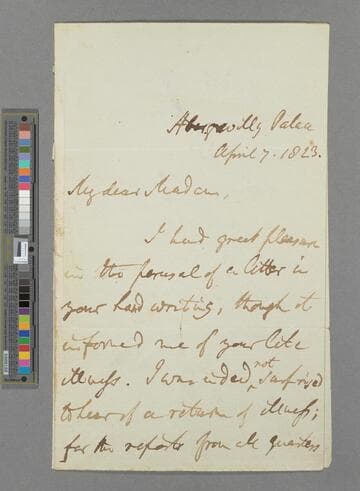 Abergwilly Palace
April 7. 1823.
My dear Madam,
I had great pleasure
in the perusal of a letter in
your hand writing, though it
informed me of your late
illness. I was indeed, not surprised
to hear of a return of illness;
for the reports from all quarters